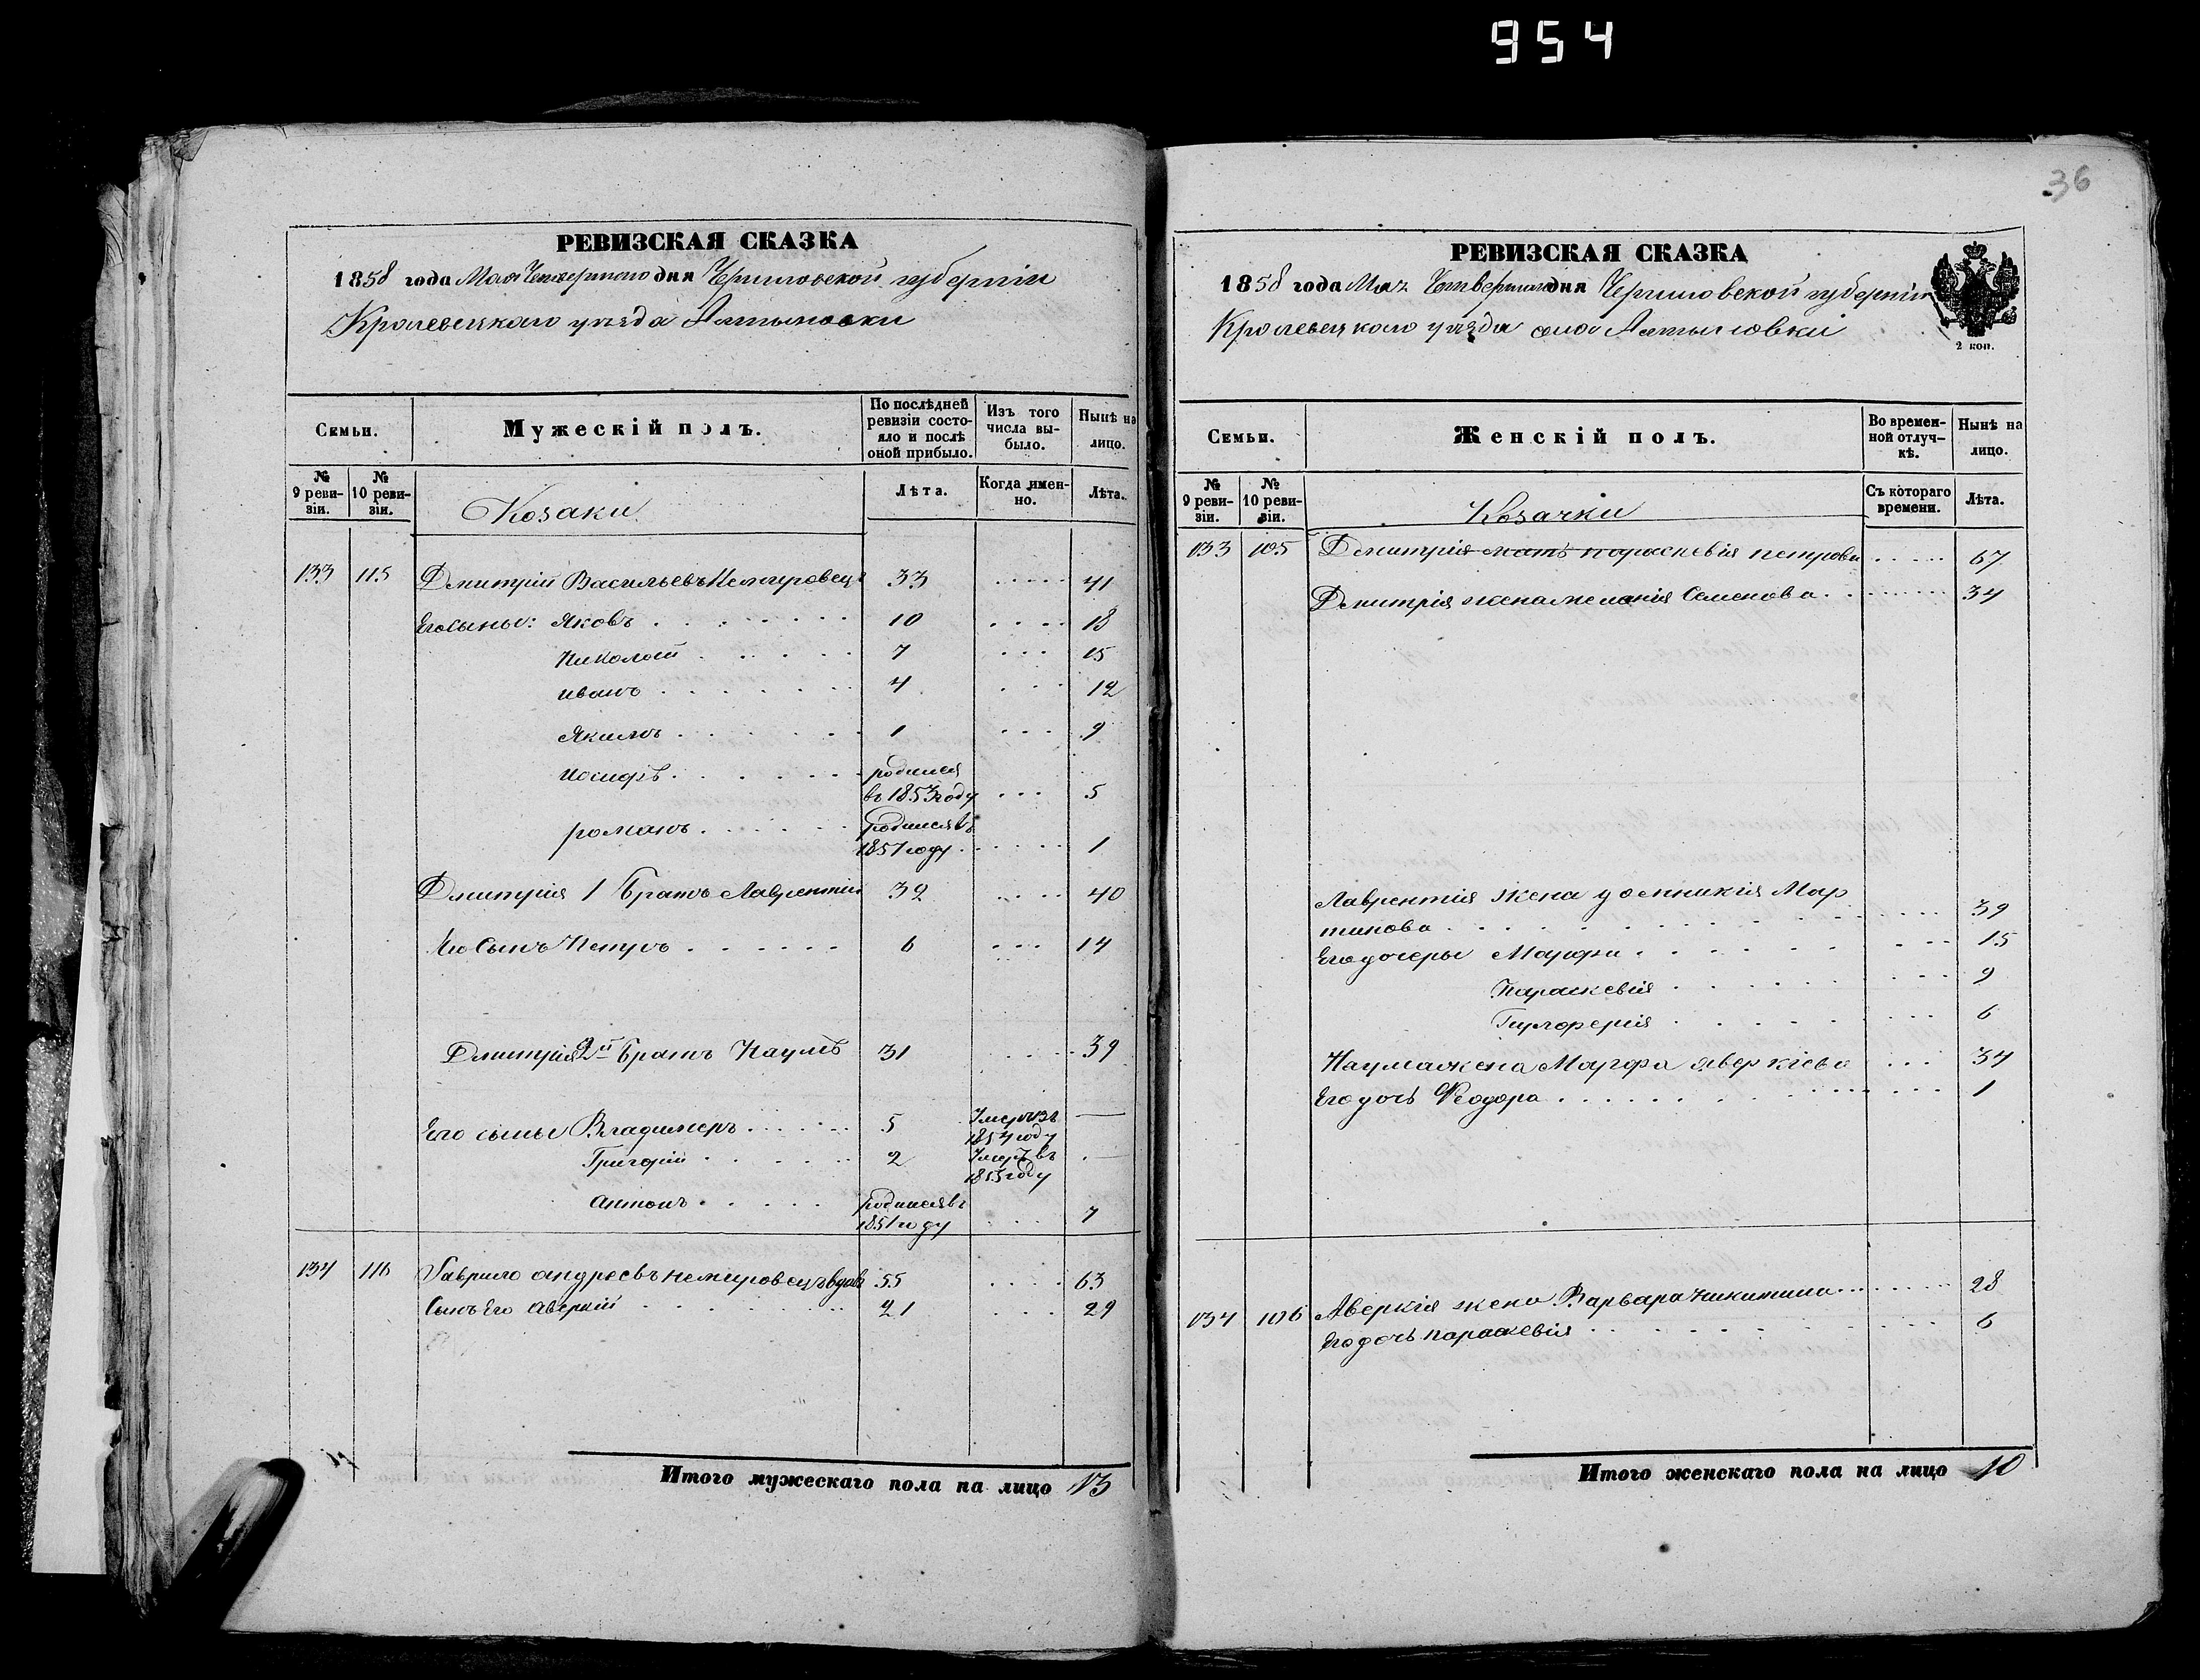 954
36
РЕВИЗСКАЯ СКАЗКА
1858 года Мая Четвертого дня Черниговской губернии
Кролевецкаго уезда Алтыновки
Семьи.
Мужескій полъ.
По послѣдней ревизіи состояло и послѣ оной прибыло.
Изъ того числа выбыло.
Нынѣ на лицо.
№ 9 ревизіи.
№ 10 ревизіи.
Козаки
Лѣта.
Когда именно.
Лѣта.
133 115 Дмитрій Васильевъ Немировецъ 33 41
Его сыны: Яковъ 10 18
Николай 7 15
Иванъ 4 12
Якимъ 1 9
Иосифъ родился
въ 1853 году 5
романъ родился въ
1857 году 1
Дмитрія 1 Братъ Лаврентій 32 40
Его Сынъ Петръ 6 14
Дмитрія 2й Братъ Наумъ 31 39
Его сыны Владимеръ 5 Умеръ въ —
1854 году
Григорій 2 Умеръ въ —
1855 году
Антонъ родился въ
1851 году 7
134 116 Гаврило андреевъ немировецъ вдовъ 55 63
Сынъ Его Аверкій 21 29
Итого мужескаго пола на лицо 13
РЕВИЗСКАЯ СКАЗКА
1858 года Мая Четвертого дня Черниговской губерніи
Кролевецкого уезда села Алтыновки
2 коп.
Семьи.
Женскій полъ.
Во временной отлучкѣ.
Нынѣ на лицо.
№ 9 ревизіи.
№ 10 ревизіи.
Козачки
Съ котораго времени.
Лѣта.
133 105 Дмитрія мать параскевія петрова 67
Дмитрія жена мелания Семенова 34
Лаврентія жена Мар
тинова 39
Его дочеры Марфа 15
Параскевія 9
6
Наума жена Марфа аверкіева 34
Его дочь Феодора 1
134 106 Аверкія жена Варвара Никитина 28
Его дочь параскевія 6
Итого женскаго пола на лицо 10